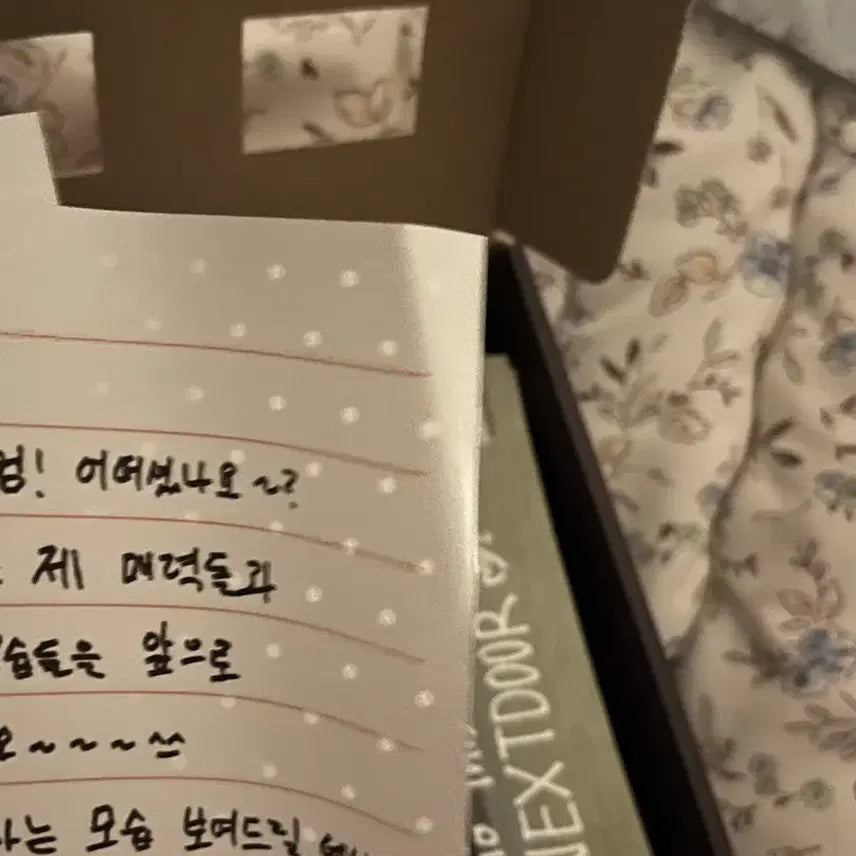 엄! 어떠셨나요~?
제 매력들과
습들을 앞으로
요~~~ ^^
나는 모습 보여드릴
NEXTDOOR